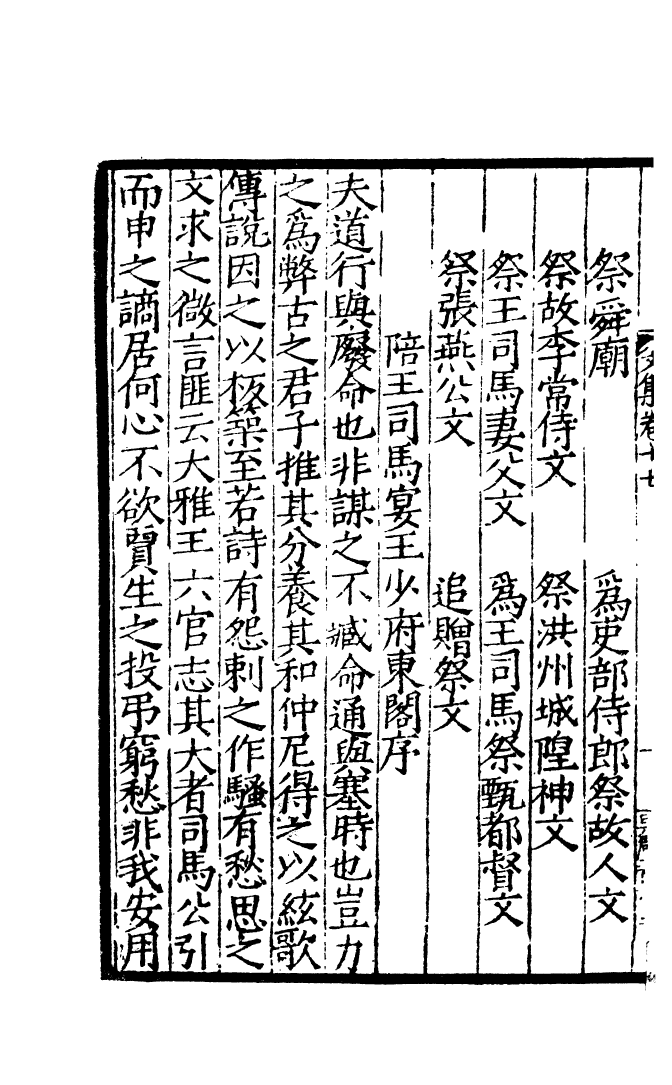 文集卷十七
祭舜廟　爲吏部侍郎祭故人文
祭故李常侍文　祭洪州城隍神文
祭王司馬妻父文　爲王司馬祭甄都督文
祭張燕公文　追贈祭文
陪王司馬宴王少府東閣序
夫道行與廢命也非謀之不臧命通與塞時也豈力
之爲弊古之君子推其分養其和仲尼得之以絃歌
傳說因之以板築至若詩有怨刺之作騷有愁思之
文求之微言匪云大雅王六官志其大者司馬公引
而申之謫居何心不欲賈生之投弔窮愁非我安用